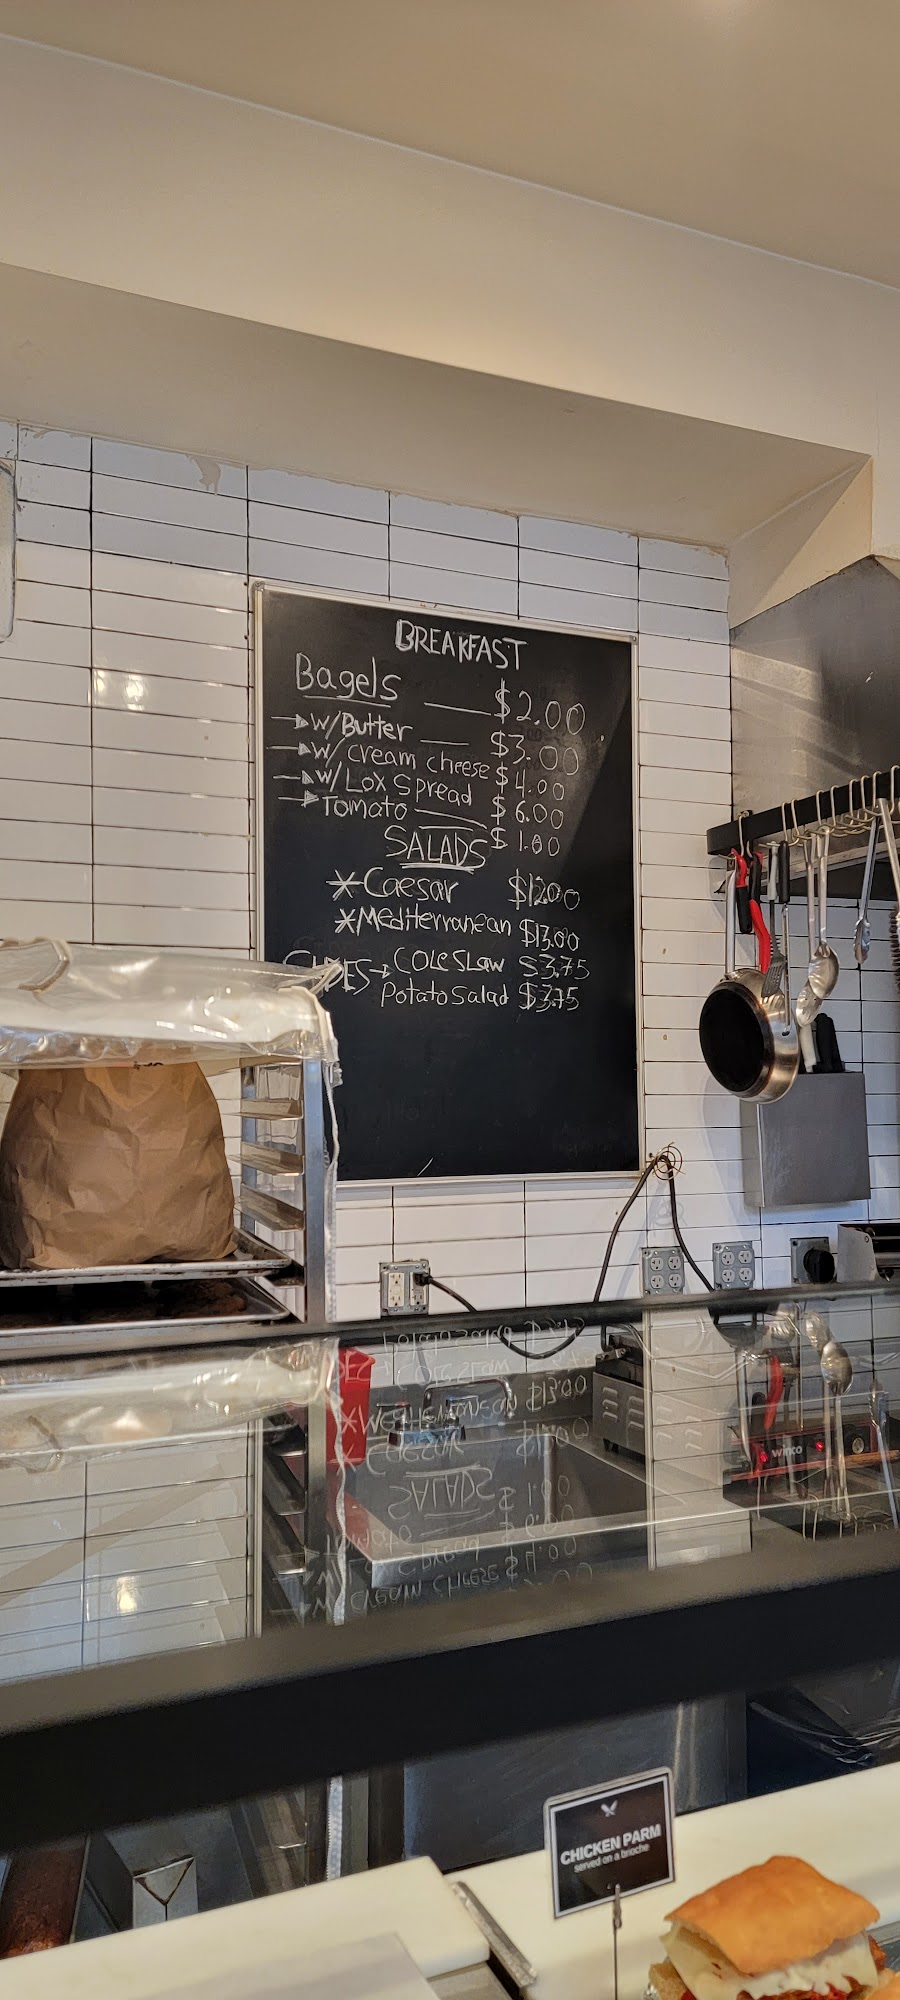 BREAKFAST
Bagels $2.00
w/Butter $3.00
w/ cream cheese $4.00
w/Lox Spread $6.00
Tomato $1.00
SALADS
*Caesar $12.00
*Mediterranean $13.00
SIDES → COLE SLAW $3.75
Potato Salad $3.75
winco
CHICKEN PARM
served on a brioche